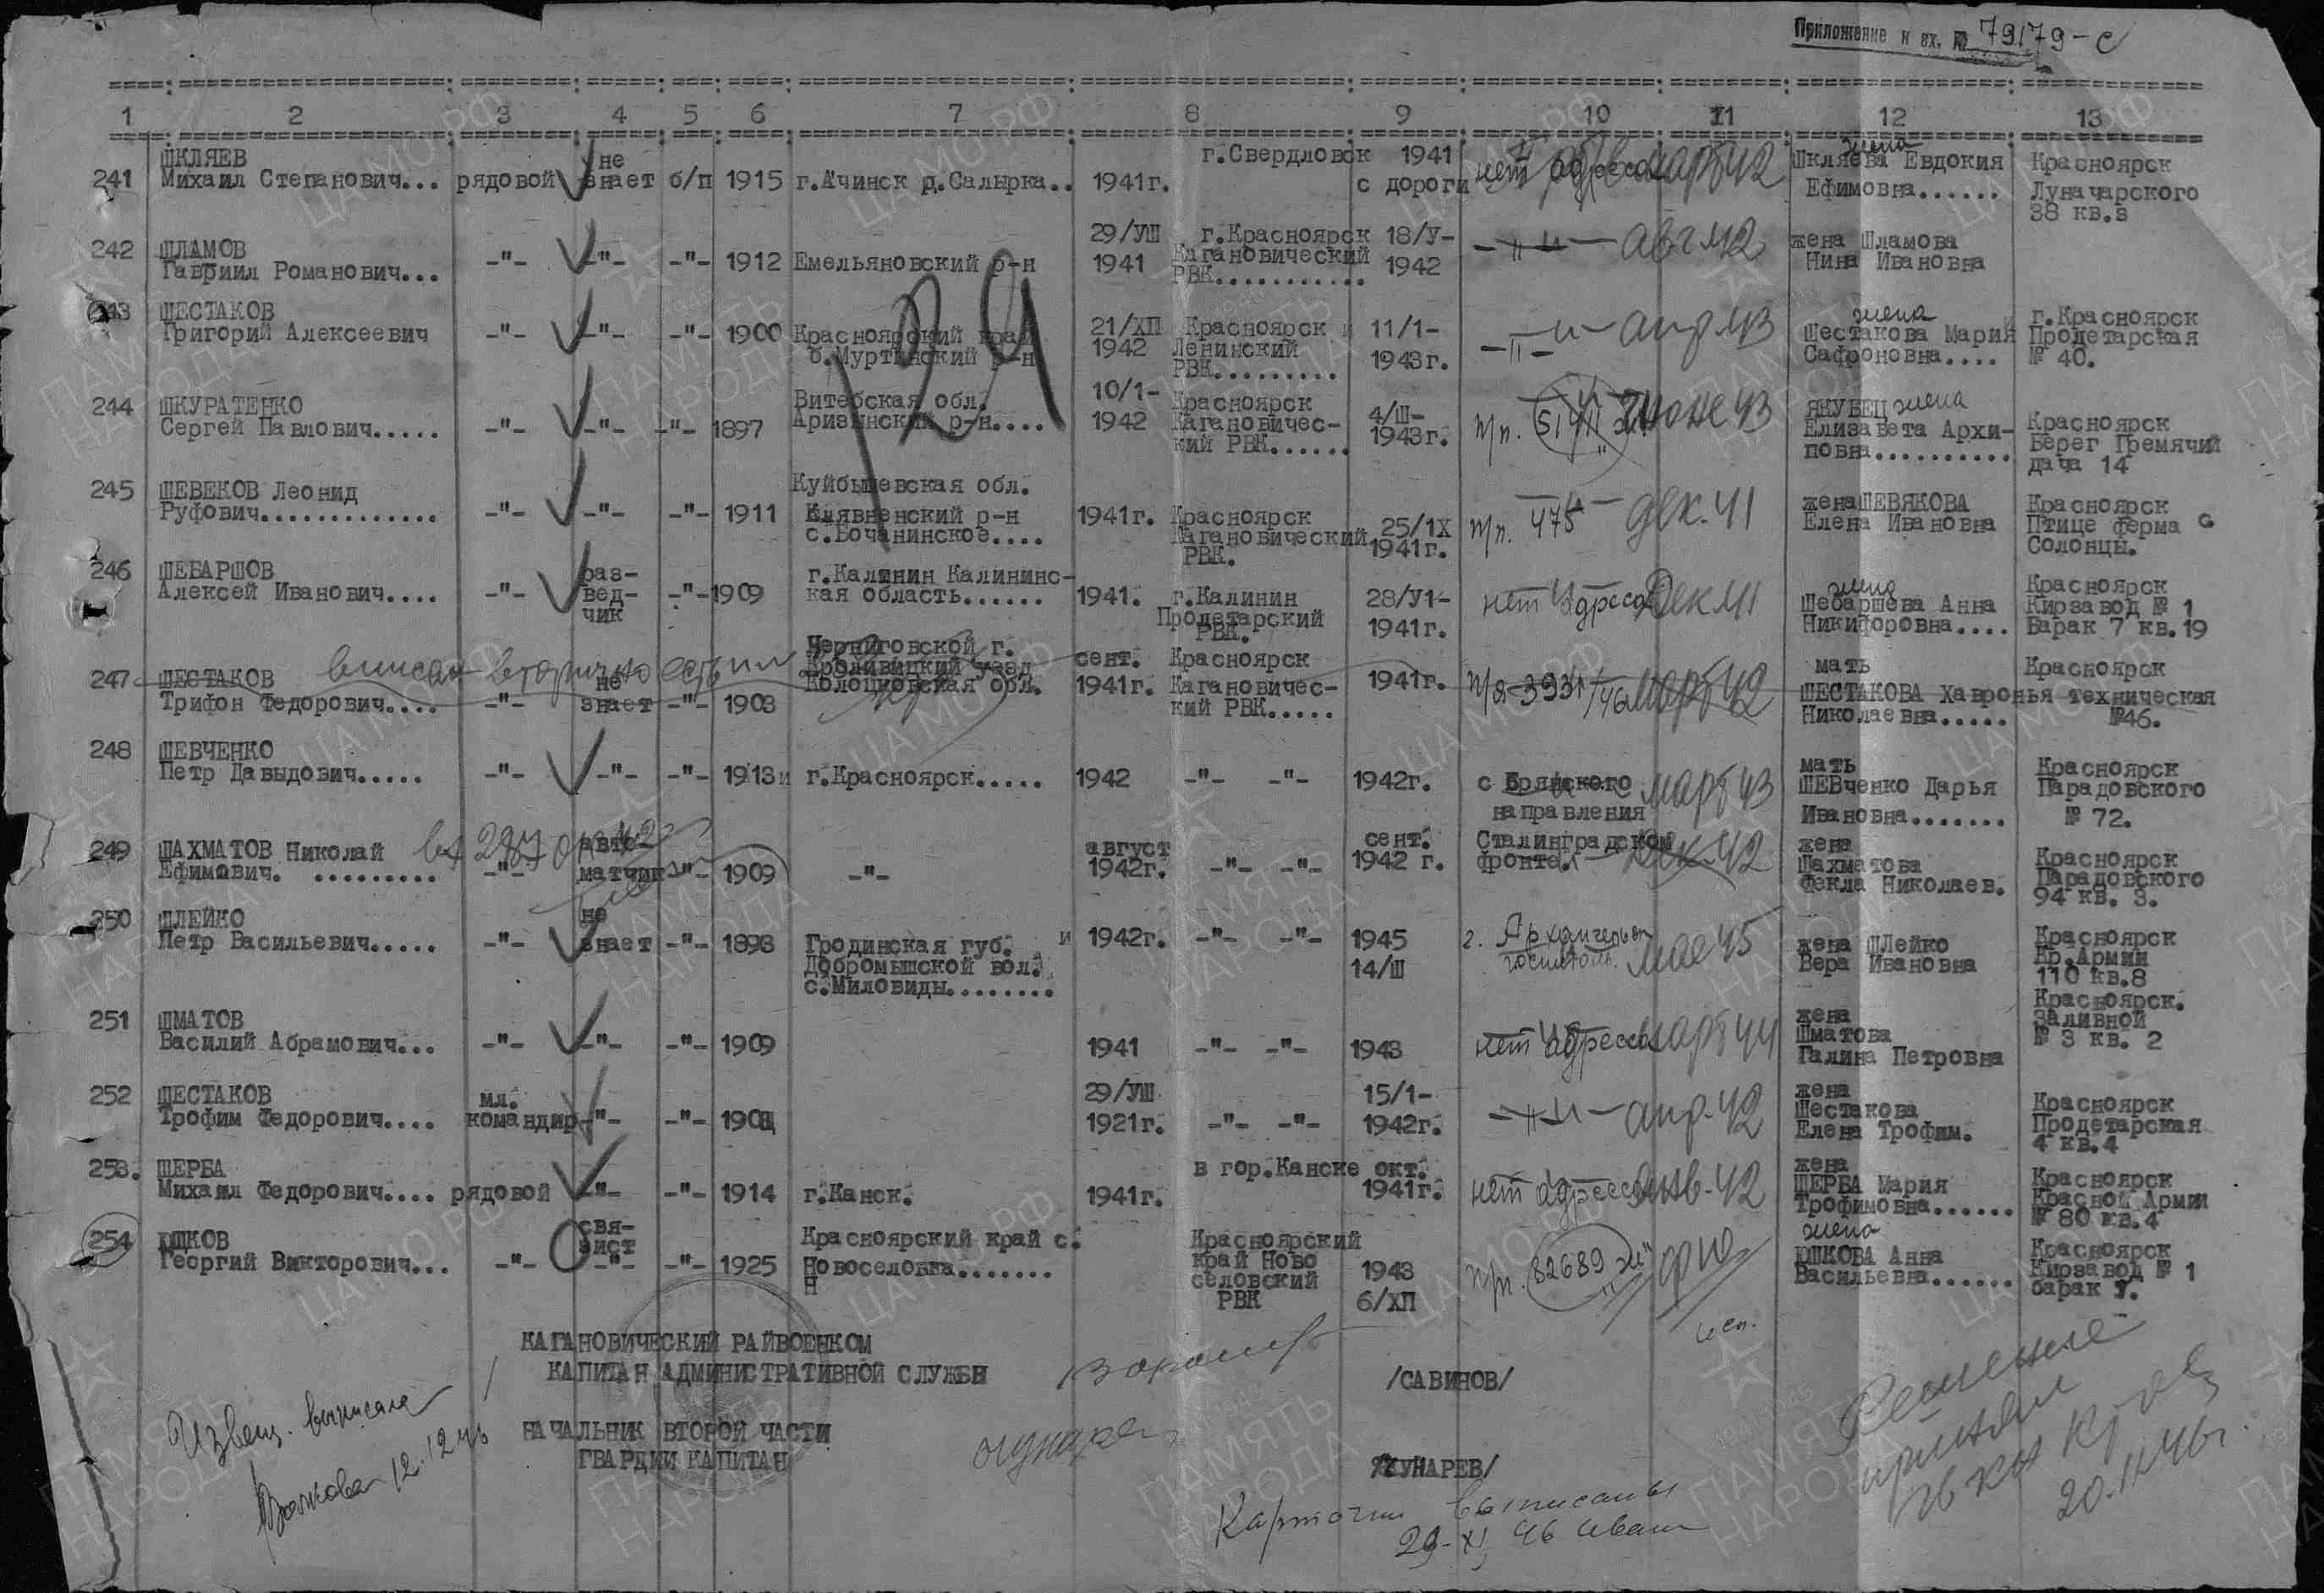 Приложение к вх. № 79179-с
1 2 3 4 5 6 7 8 9 10 11 12 13
241 ШКЛЯЕВ Михаил Степанович... рядовой не знает б/п 1915 г.Ачинск д.Салырка.. 1941г. г.Свердловск 1941 с дороги нет адреса март 42 жена Шкляева Евдокия Ефимовна...... Красноярск Луначарского 38 кв.з
242 ШЛАМОВ Гавриил Романович... -"- -"- -"- 1912 Емельяновский р-н 29/УШ 1941 г.Красноярск Кагановический РВК........... 18/У- 1942 -"- авг 42 жена Шламова Нина Ивановна
243 ШЕСТАКОВ Григорий Алексеевич -"- -"- -"- 1900 Красноярский край б.Муртинский р-н 21/ХП 1942 Красноярск Ленинский РВК......... 11/1- 1943г. -"- апр 43 жена Шестакова Мария Сафроновна.... г.Красноярск Пролетарская № 40.
244 ШКУРАТЕНКО Сергей Павлович..... -"- -"- -"- 1897 Витебская обл. р-н.... 10/1- 1942 Красноярск Кагановичес- кий РВК...... 4/Ш- 1943г. п/п. июне 43 ЯКУБЕЦ жена Елизавета Архи- повна.......... Красноярск Берег Гремячий дача 14
245 ШЕВЕКОВ Леонид Руфович............. -"- -"- -"- 1911 Куйбышевская обл. Клявненский р-н с.Бочанинское.... 1941г. Красноярск Кагановический РВК. 25/1Х 1941г. п/п. 475 дек. 41 жена ШЕВЯКОВА Елена Ивановна Красноярск Птице ферма с Солонцы.
246 ШЕБАРШОВ Алексей Иванович.... -"- раз- вед- чик -"- 1909 г.Калинин Калининс- кая область...... 1941. г.Калинин Пролетарский РВК. 28/У1- 1941г. нет адреса Дек 41 жена Шебаршева Анна Никифоровна.... Красноярск Кирзавод № 1 Барак 7 кв.19
вписан вторично
247 ШЕСТАКОВ Трифон Федорович.... -"- не знает -"- 1903 Черниговской г. Кроливицкий уезд обл. сент. 1941г. Красноярск Кагановичес- кий РВК..... 1941г. п/я март 42 мать ШЕСТАКОВА Хавронья Николаевна..... Красноярск техническая №46.
248 ШЕВЧЕНКО Петр Давыдович..... -"- -"- -"- 1913 г.Красноярск..... 1942 -"- -"- 1942г. с Брянского направления март 43 мать ШЕВченко Дарья Ивановна....... Красноярск Парадовского № 72.
249 ШАХМАТОВ Николай Ефимович. ......... -"- авто- матчик -"- 1909 -"- август 1942г. -"- -"- сент. 1942 г. Сталинградском фронте. дек 42 жена Шахматова Фекла Николаев. Красноярск Парадовского 94 кв. 3.
250 ШЛЕЙКО Петр Васильевич..... -"- не знает -"- 1898 Гродинская губ. Добромышской вол. с.Миловиды........ 1942г. -"- -"- 1945 14/Ш г. Архангельск госпиталь. мае 45 жена ШЛейко Вера Ивановна Красноярск Кр.Армии 110 кв.8
251 ШМАТОВ Василий Абрамович... -"- -"- -"- 1909 1941 -"- -"- 1943 нет адреса март 44 жена Шматова Галина Петровна Красноярск. Заливной № 3 кв. 2
252 ШЕСТАКОВ Трофим Федорович.... мл. командир -"- -"- 29/УШ 1921г. -"- -"- 15/1- 1942г. -"- апр. 42 жена Шестакова Елена Трофим. Красноярск Пролетарская 4 кв.4
253. ШЕРБА Михаил Федорович.... рядовой -"- -"- 1914 г.Канск. 1941г. в гор.Канске окт. 1941г. нет адреса янв. 42 жена ШЕРБА Мария Трофимовна...... Красноярск Красной Армии № 80 кв.4
254 ЮШКОВ Георгий Викторович... -"- свя- зист -"- -"- 1925 Красноярский край с. Новоселовка....... Н Красноярский край Ново селовский РВК 1943 6/ХП п/п. 82689 жена ЮШКОВА Анна Васильевна...... Красноярск Кирзавод № 1 барак
КАГАНОВИЧЕСКИЙ РАЙВОЕНКОМ
КАПИТАН АДМИНИСТРАТИВНОЙ СЛУЖБЫ /САВИНОВ/
НАЧАЛЬНИК ВТОРОЙ ЧАСТИ
ГВАРДИИ КАПИТАН
Извещ. выписала
Волкова 12.12.46
Карточки выписаны
29-XI 46
Решение
принял
20.11.46г.
ПАМЯТЬ НАРОДА
ЦАМО РФ